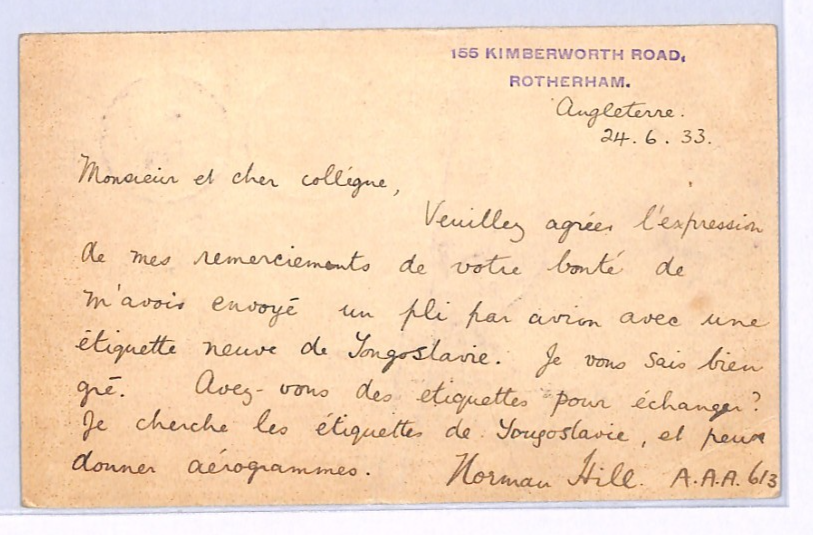 155 KIMBERWORTH ROAD,
ROTHERHAM.
Angleterre.
24. 6. 33.
Monsieur et cher collégue,
Veuillez agréer l'expression
de mes remerciements de votre bonté de
m'avois envoyé un pli par avion avec une
étiquette neuve de Yougoslavie. Je vous sais bien
gré. Avez-vous des etiquettes pour échanger?
Je cherche les étiquettes de Yougoslavie, et peux
donner aérogrammes. Norman Hill. A.A.A. 613